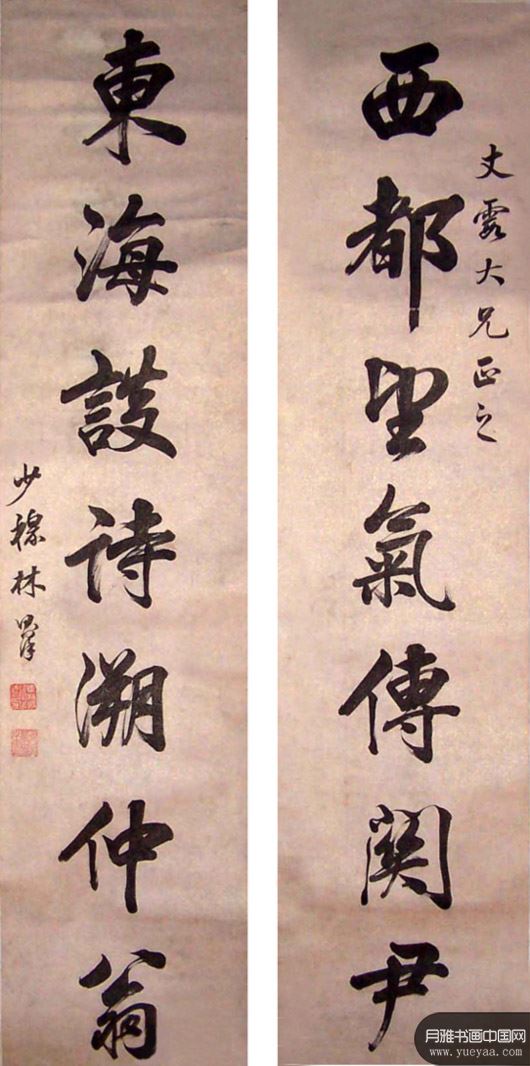 西都望氣傳關尹
丈霞大兄正之
東海談詩溯仲翁
少穆林則徐
月雅书画中国网
www.yueyaa.com